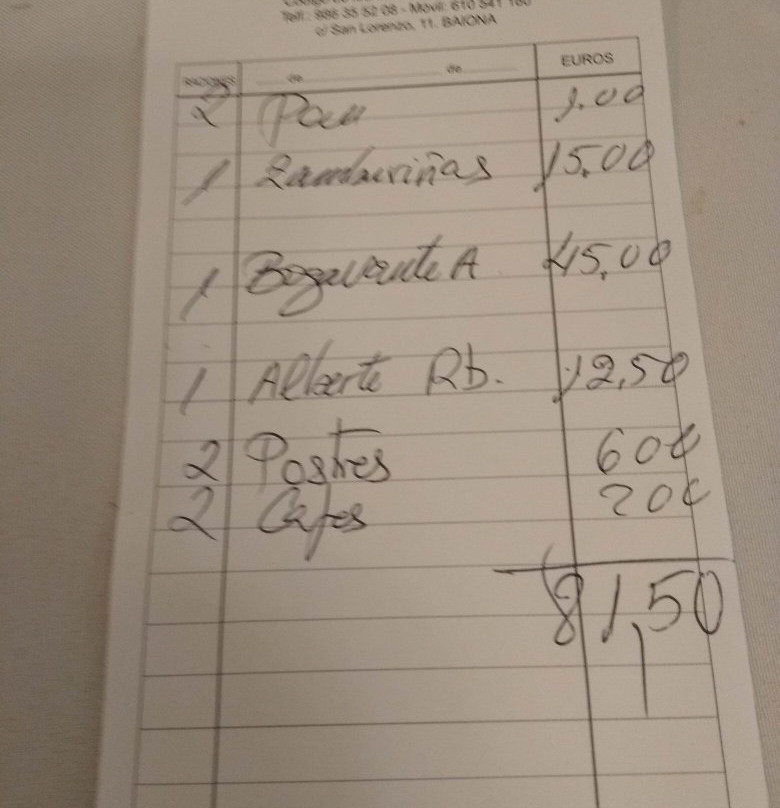 Telf.: 986 35 52 08 - Móvil: 610 541 180
c/ San Lorenzo, 11. BAIONA
RACIONES de de EUROS
2 Pan 1.00
1 Zamburiñas 15.00
1 Bogavante A 45,00
1 Alberte Rb. 12,50
2 Postres 600
2 Cafes 200
81,50